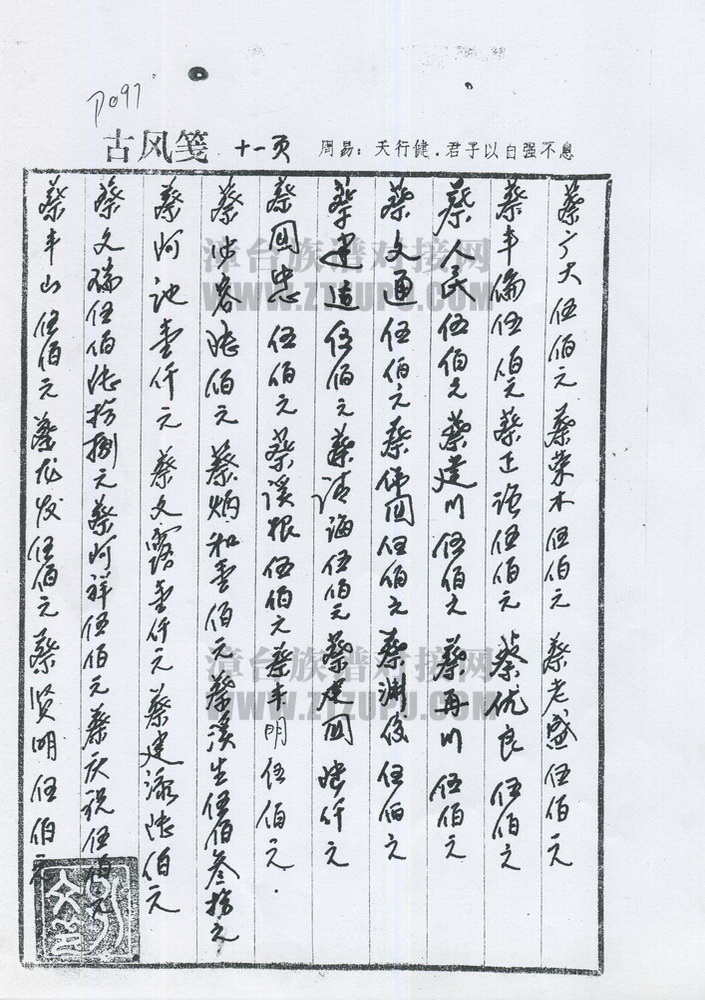 P097
古风笺 十一页 周易：天行健．君子以自强不息
蔡广天伍佰元 蔡荣木伍佰元 蔡老盛伍佰元
蔡丰伦伍佰元 蔡正强伍佰元 蔡优良伍佰元
蔡人民伍佰元 蔡建川伍佰元 蔡再川伍佰元
蔡文通伍佰元 蔡伟国伍佰元 蔡渊俊伍佰元
蔡建造伍佰元 蔡清海伍佰元 蔡建国陆仟元
蔡国忠伍佰元 蔡溪根伍佰元 蔡丰明伍佰元．
蔡沙容陆佰元 蔡炳和壹佰元 蔡溪生伍佰叁拾元
蔡河池壹仟元 蔡文露壹仟元 蔡建添陆佰元
蔡文瑞伍佰陆拾捌元 蔡河祥伍佰元 蔡庆祝伍佰元
蔡丰山伍佰元 蔡龙发伍佰元 蔡贤明伍佰元
漳台族谱对接网
WWW.ZTZUPU.COM
漳台族谱对接网
WWW.ZTZUPU.COM